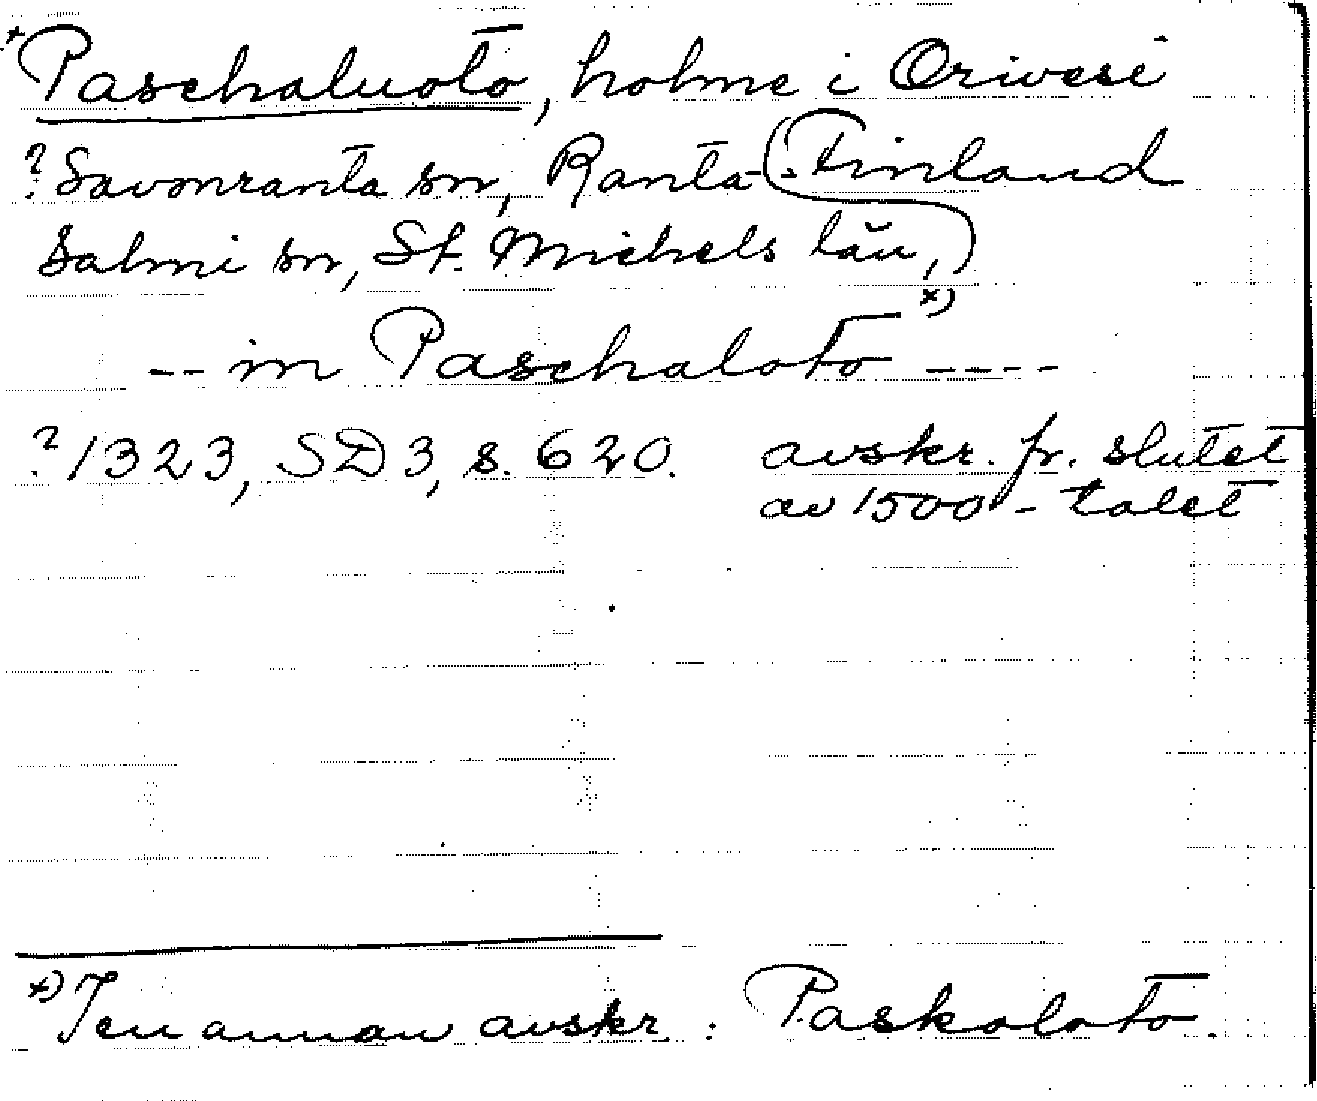 *Paschaluoto, holme i Orivesi
? Savonranta sn, Ranta- (Finland
salmi sn, St. Michels län,)
-- in Paschaloto x) ----
? 1323, SD 3, s. 620. avskr. fr. slutet
av 1500-talet
x) I en annan avskr.: Paskoloto.